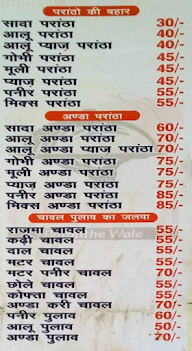 परांठो की बहार
सादा परांठा 30/-
आलू परांठा 40/-
आलू प्याज परांठा 40/-
गोभी परांठा 45/-
मूली परांठा 45/-
प्याज परांठा 45/-
पनीर परांठा 55/-
मिक्स परांठा 55/-
अण्डा परांठा
सादा अण्डा परांठा 60/-
आलू अण्डा परांठा 70/-
आलू अण्डा प्याज परांठा 70/-
गोभी अण्डा परांठा 75/-
मूली अण्डा परांठा 75/-
प्याज अण्डा परांठा 75/-
पनीर अण्डा परांठा 85/-
मिक्स अण्डा परांठा 85/-
चावल पुलाव का जलवा
राजमा चावल 55/-
कढ़ी चावल 55/-
दाल चावल 55/-
मटर चावल 55/-
मटर पनीर चावल 70/-
छोले चावल 55/-
कोफ्ता चावल 55/-
अण्डा करी चावल 70/-
पनीर पुलाव 60/-
आलू पुलाव 50/-
अण्डा पुलाव 70/-